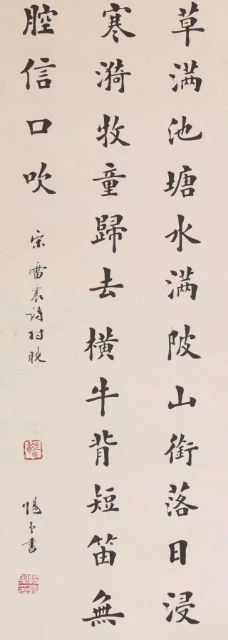 草满池塘水满陂山銜落日浸
寒漪牧童歸去橫牛背短笛無
腔信口吹
宋雷震诗村晚
書